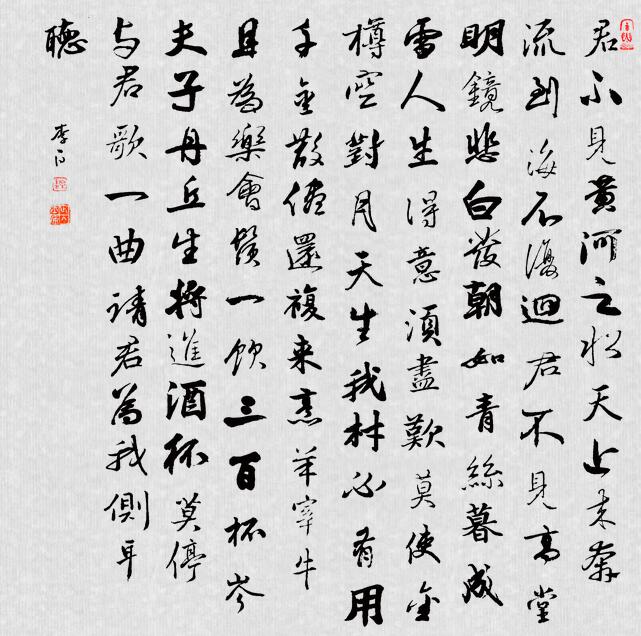 君不見黃河之水天上来奔
流到海不復迴君不見高堂
明鏡悲白發朝如青絲暮成
雪人生得意須盡歡莫使金
樽空對月天生我材必有用
千金散儘還複来烹羊宰牛
且為樂會須一飲三百杯岑
夫子丹丘生將進酒杯莫停
与君歌一曲請君為我側耳
聽
李白